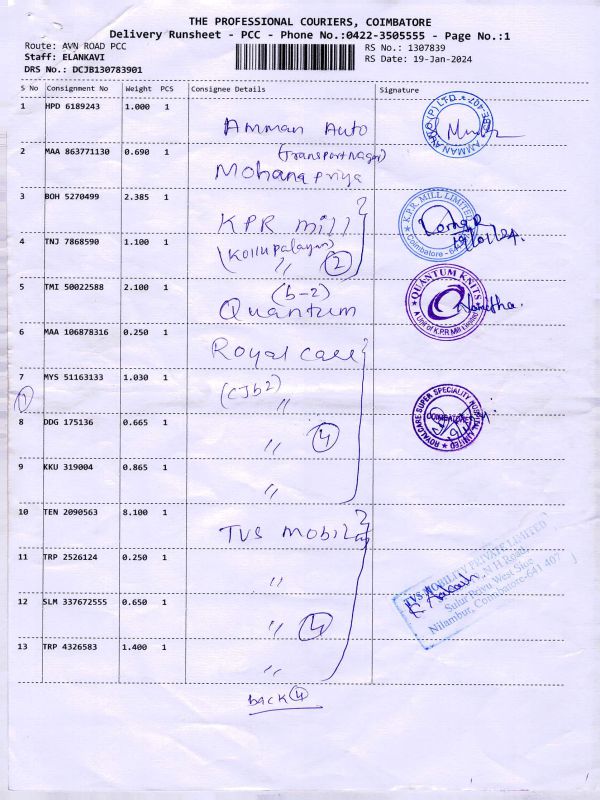 THE PROFESSIONAL COURIERS, COIMBATORE
Delivery Runsheet - PCC - Phone No.:0422-3505555 - Page No.:1
Route: AVN ROAD PCC
RS No.: 1307839
Staff: ELANKAVI
RS Date: 19-Jan-2024
DRS No.: DCJB130783901
S No Consignment No Weight PCS Consignee Details Signature
1 HPD 6189243 1.000 1 Amman Auto
(Transport Nagar)
2 MAA 863771130 0.690 1 Mohana Priya
3 BOH 5270499 2.385 1 KPR mill
(Kollupalayam)
4 TNJ 7868590 1.100 1 " 2
(b-2)
5 TMI 50022588 2.100 1 Quantum
6 MAA 106878316 0.250 1 Royal care
(CJb2)
7 MYS 51163133 1.030 1 "
1
8 DDG 175136 0.665 1 " 4
9 KKU 319004 0.865 1 "
10 TEN 2090563 8.100 1 TVS Mobility
11 TRP 2526124 0.250 1 "
12 SLM 337672555 0.650 1 " 4
13 TRP 4326583 1.400 1 "
back 4
AMMAN AUTO (P) LTD.
K.P.R. MILL LIMITED
Coimbatore - 641
QUANTUM KNITS
A Unit of K.P.R Mill Limited
ROYALCARE SUPER SPECIALITY HOSPITAL LIMITED
COIMBATORE
TVS MOBILITY PRIVATE LIMITED
N H Road,
Nilambur, Coimbatore-641 407